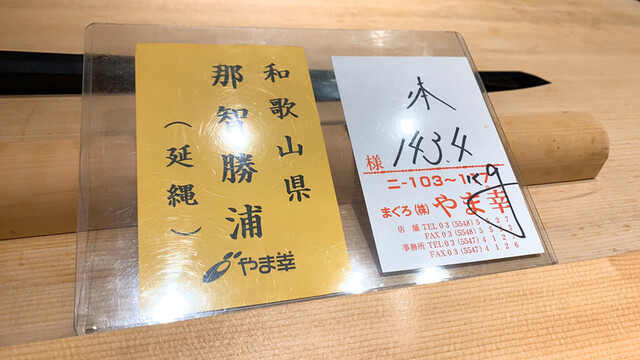 和歌山県
那智勝浦
（延縄）
やま幸
本
143.4
様
ニ-103〜
まぐろ(株)やま幸
店舗 TEL 03(5548)5
FAX 03(5548)5
事務所 TEL 03(5547)412
FAX 03(5547)4126